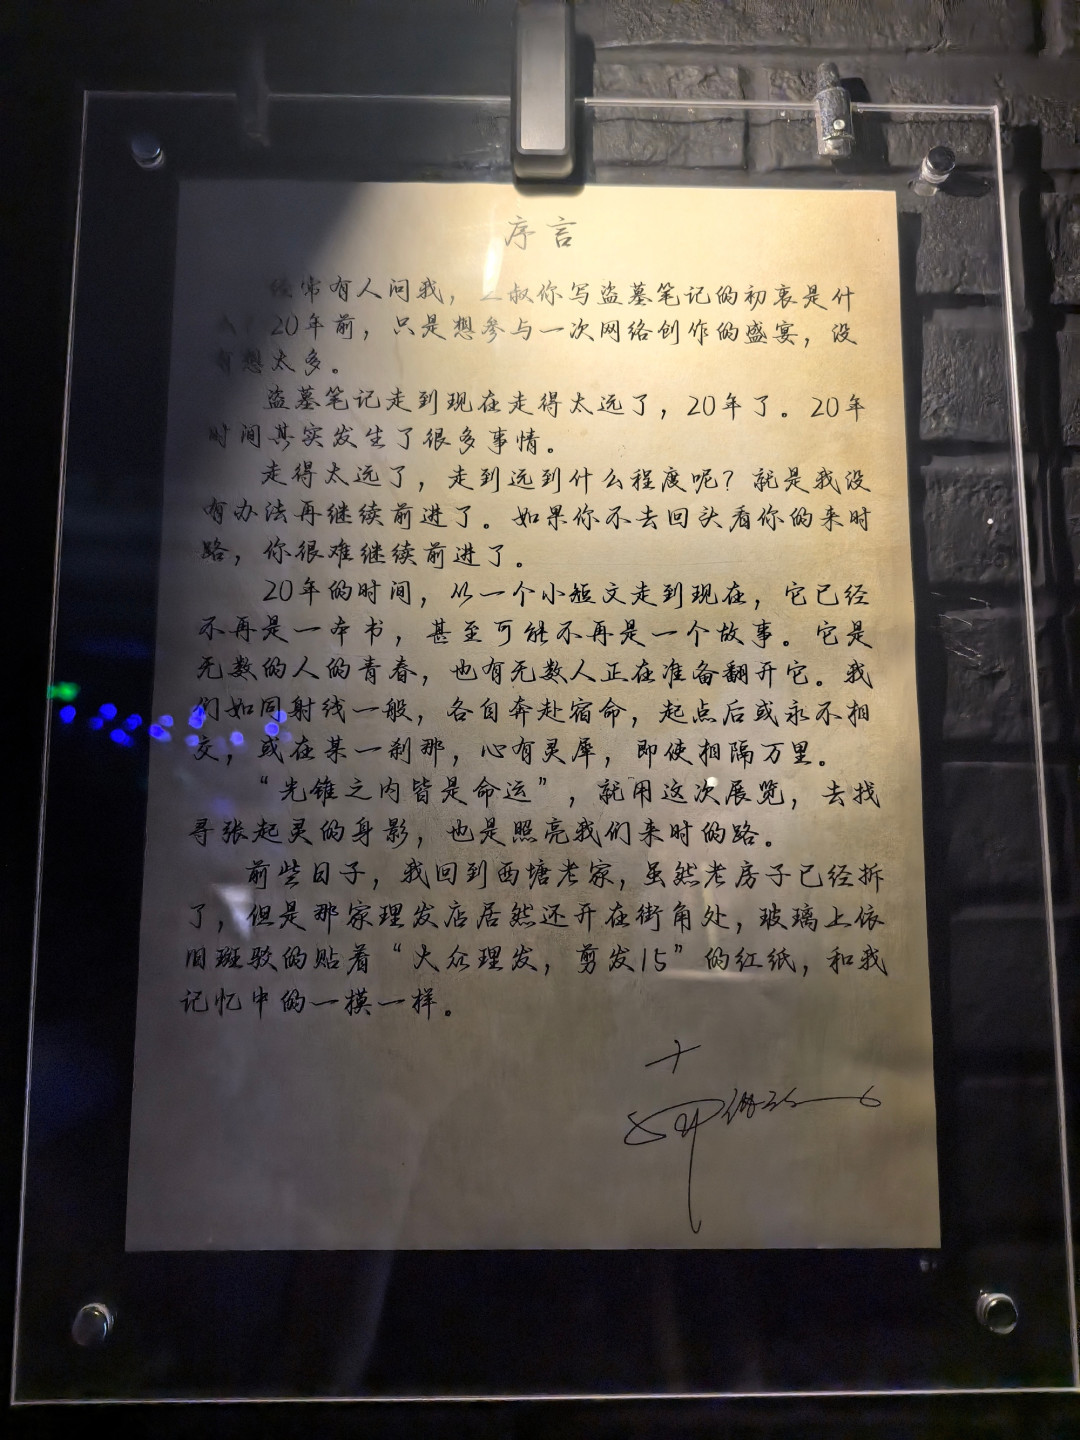 序言
经常有人问我，三叔你写盗墓笔记的初衷是什
么？20年前，只是想参与一次网络创作的盛宴，没
有想太多。
盗墓笔记走到现在走得太远了，20年了。20年
时间其实发生了很多事情。
走得太远了，走到远到什么程度呢？就是我没
有办法再继续前进了。如果你不去回头看你的来时
路，你很难继续前进了。
20年的时间，从一个小短文走到现在，它已经
不再是一本书，甚至可能不再是一个故事。它是
无数的人的青春，也有无数人正在准备翻开它。我
们如同射线一般，各自奔赴宿命，起点后或永不相
交，或在某一刹那，心有灵犀，即使相隔万里。
“光锥之内皆是命运”，就用这次展览，去找
寻张起灵的身影，也是照亮我们来时的路。
前些日子，我回到西塘老家，虽然老房子已经拆
了，但是那家理发店居然还开在街角处，玻璃上依
旧斑驳的贴着“大众理发，剪发15”的红纸，和我
记忆中的一模一样。